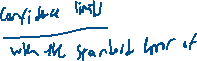 Confidence limits
with the standard error of